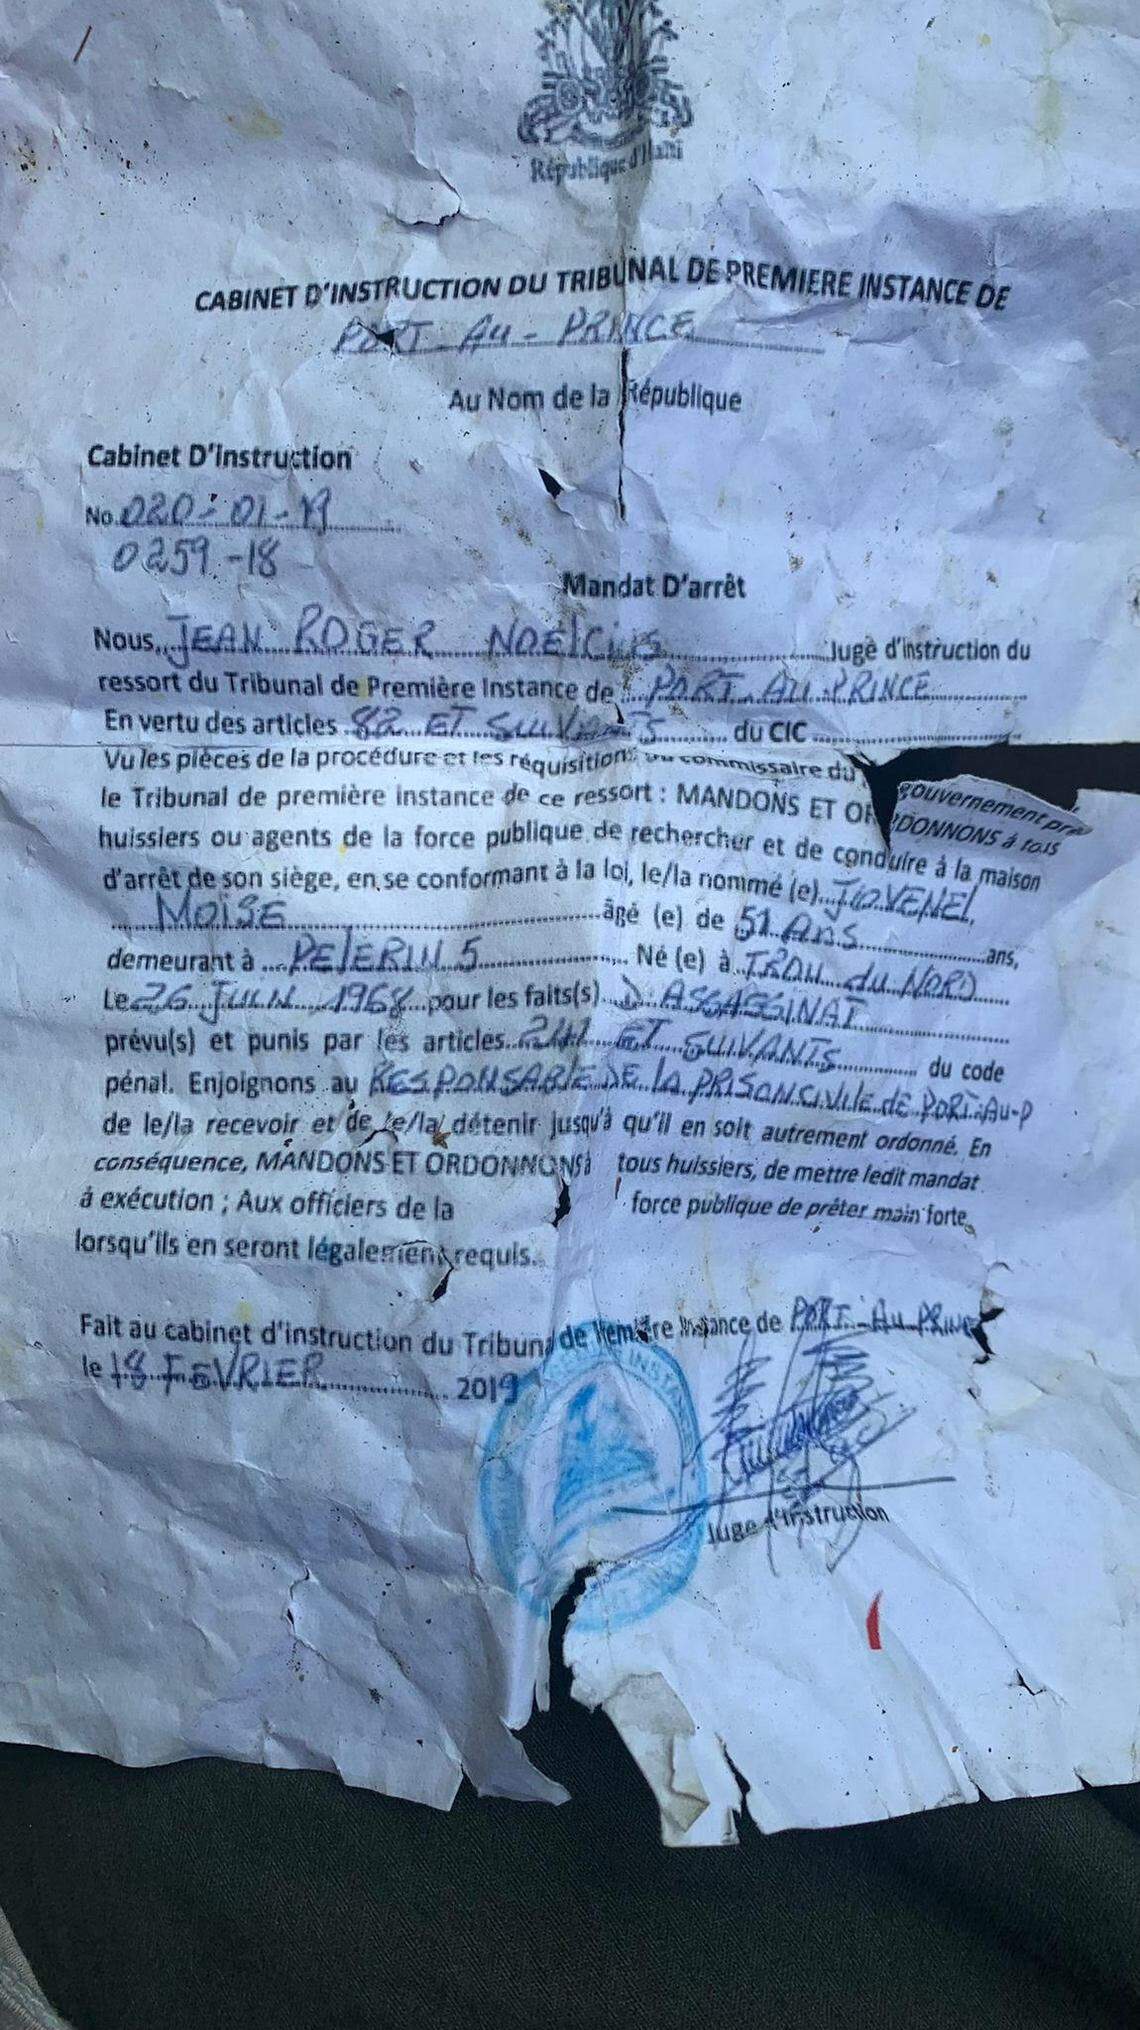 République d'Haïti
CABINET D'INSTRUCTION DU TRIBUNAL DE PREMIERE INSTANCE DE
PORT-AU-PRINCE
Au Nom de la République
Cabinet D'instruction
No. 020-01-19
0259-18
Mandat D'arrêt
Nous, JEAN ROGER NOElCius Juge d'instruction du
ressort du Tribunal de Première Instance de PORT AU PRINCE
En vertu des articles 82 ET SUIVANTS du CIC
Vu les pièces de la procédure et les réquisitions du commissaire du gouvernement près
le Tribunal de première instance de ce ressort : MANDONS ET ORDONNONS à tous
huissiers ou agents de la force publique de rechercher et de conduire à la maison
d'arrêt de son siège, en se conformant à la loi, le/la nommé (e) JOVENEL
MOISE âgé (e) de 51 Ans ans,
demeurant à PELERIN 5 Né (e) à TROU du NORD
Le 26 JUIN 1968 pour les faits(s) D ASSASSINAT
prévu(s) et punis par les articles 241 ET SUIVANTS du code
pénal. Enjoignons au RESPONSABLE DE LA PRISON CIVILE de PORT-AU-P
de le/la recevoir et de le/la détenir jusqu'à qu'il en soit autrement ordonné. En
conséquence, MANDONS ET ORDONNONS à tous huissiers, de mettre ledit mandat
à exécution ; Aux officiers de la force publique de prêter main forte
lorsqu'ils en seront légalement requis.
Fait au cabinet d'instruction du Tribunal de Première Instance de PORT-AU-PRINCE
le 18 FEVRIER 2019
Juge d'instruction